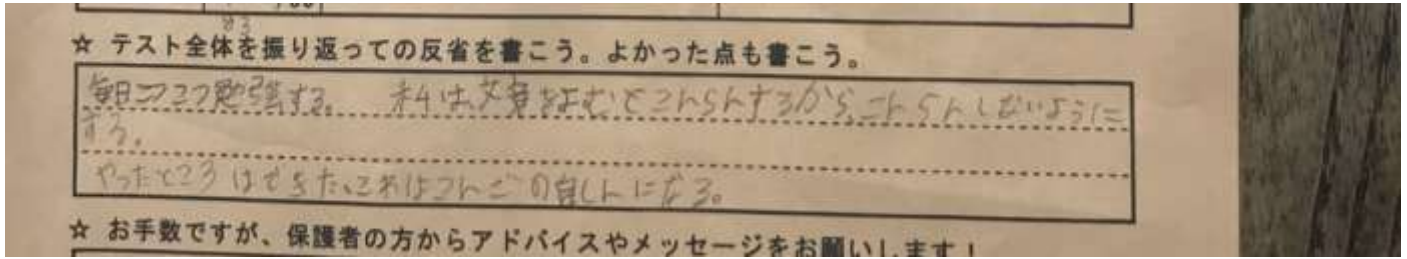 ☆ テスト全体を振り返っての反省を書こう。よかった点も書こう。
毎日コツコツ勉強する。 私は文章をよむとこんらんするから、こんらんしないように
する。
やったところはできた。これはこんごの自しんになる。
☆ お手数ですが、保護者の方からアドバイスやメッセージをお願いします!